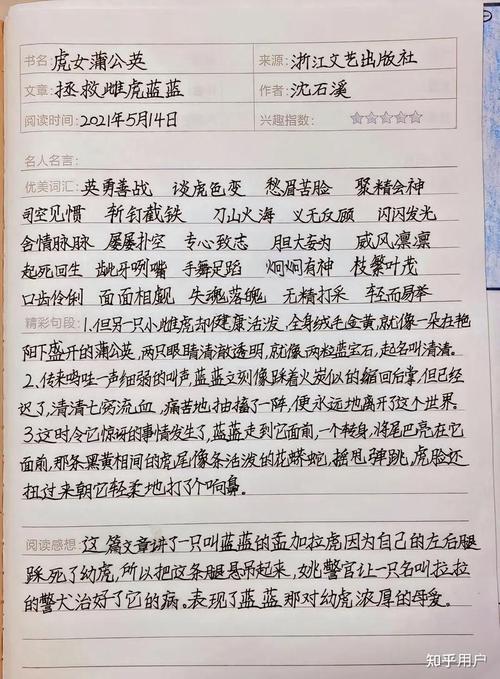 书名: 虎女蒲公英 来源: 浙江文艺出版社
文章: 拯救雌虎蓝蓝 作者: 沈石溪
阅读时间: 2021年5月14日 兴趣指数:
名人名言:
优美词汇: 英勇善战 谈虎色变 愁眉苦脸 聚精会神
司空见惯 斩钉截铁 刀山火海 义无反顾 闪闪发光
含情脉脉 屡屡扑空 专心致志 胆大妄为 威风凛凛
起死回生 龇牙咧嘴 手舞足蹈 炯炯有神 枝繁叶茂
口齿伶俐 面面相觑 失魂落魄 无精打采 轻而易举
精彩句段: 1.但另一只小雌虎却健康活泼,全身绒毛金黄,就像一朵在艳
阳下盛开的蒲公英,两只眼睛清澈透明,就像两粒蓝宝石,起名叫清清。
2.传来呜哇一声细弱的叫声,蓝蓝立刻像踩着火炭似的缩回后掌,但已经
迟了,清清七窍流血,痛苦地抽搐了一阵,便永远地离开了这个世界。
3.这时令它惊讶的事情发生了,蓝蓝走到它面前,一个转身,将尾巴亮在它
面前,那条黑黄相间的虎尾像条活泼的花蟒蛇,摇甩弹跳,虎脸还
扭过来朝它轻柔地打了个响鼻。
阅读感想: 这篇文章讲了一只叫蓝蓝的孟加拉虎因为自己的左后腿
踩死了幼虎,所以把这条腿悬吊起来,姚警官让一只名叫拉拉
的警犬治好了它的病。表现了蓝蓝那对幼虎浓厚的母爱。
知乎用户